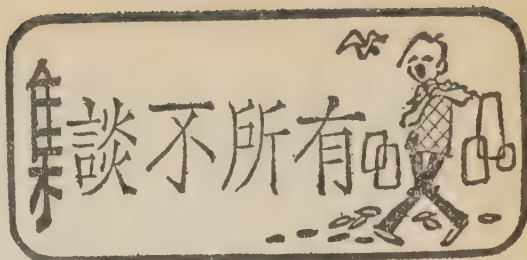 有所不談集